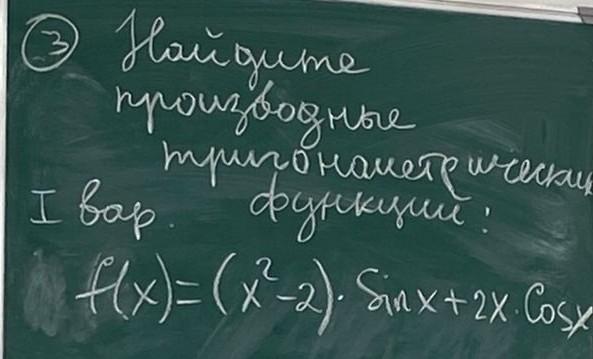 3 Найдите
производные
тригонометрически
I вар. функций:
f(x)=(x²-2)·Sinx+2x·Cosx